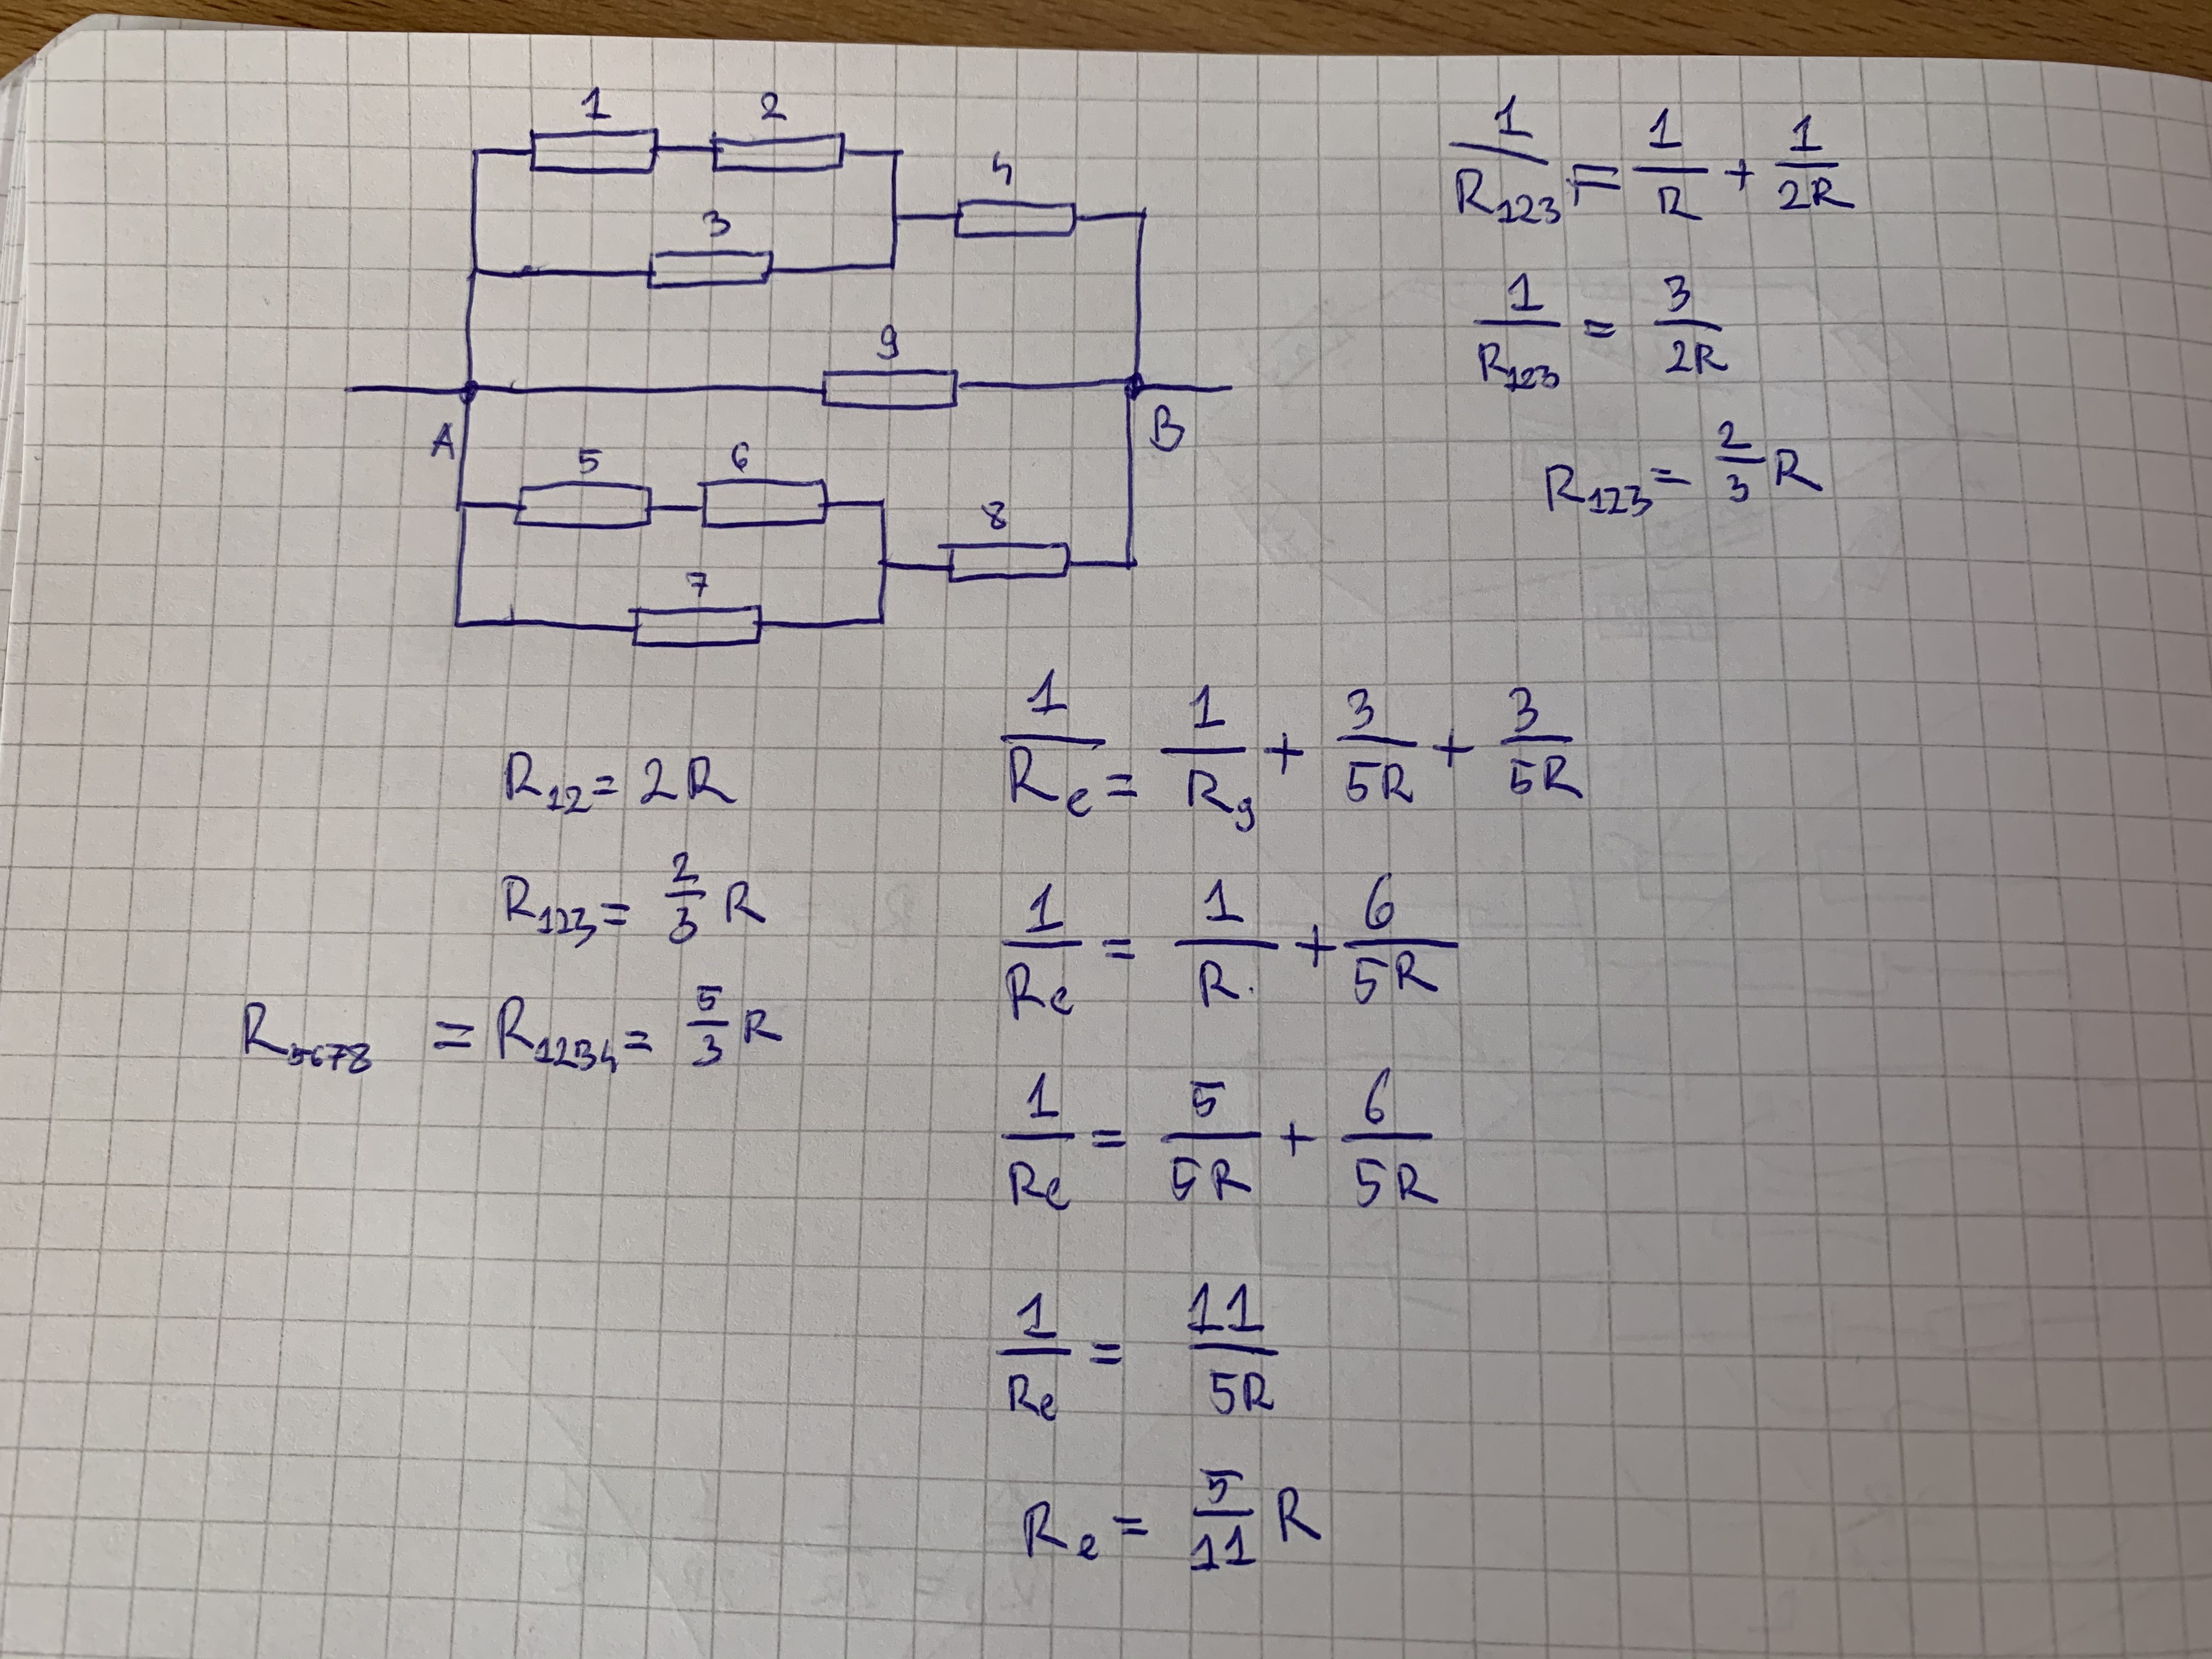 1 2
4
3
9
A B
5 6
8
7
1/R₁₂₃ = 1/R + 1/2R
1/R₁₂₃ = 3/2R
R₁₂₃ = 2/3 R
R₁₂ = 2R
R₁₂₃ = 2/3 R
R₅₆₇₈ = R₁₂₃₄ = 5/3 R
1/Re = 1/R₉ + 3/5R + 3/5R
1/Re = 1/R + 6/5R
1/Re = 5/5R + 6/5R
1/Re = 11/5R
Re = 5/11 R